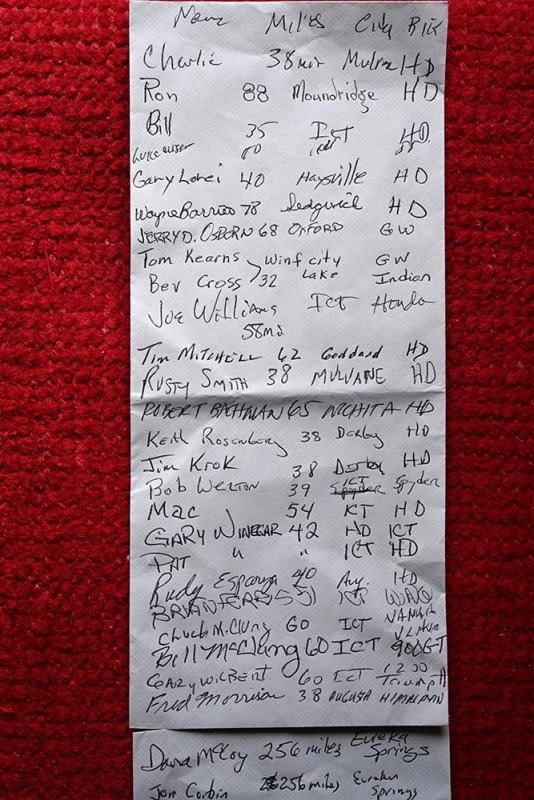 Name Miles City Bike
Charlie 38 mi Mulvane HD
Ron 88 Moundridge HD
Bill 35 ICT HD
60
Gary Lorei 40 Haysville HD
Wayne Barrios 78 Sedgwick HD
JERRY D. OSBORN 68 OXFORD GW
Tom Kearns Winf city GW
Bev Cross 32 Lake Indian
Joe Williams ICT Honda
58 mi
Tim Mitchell 62 Goddard HD
Rusty Smith 38 MULVANE HD
ROBERT 65 WICHITA HD
Keith Rosenberg 38 Derby HD
Jim Krok 38 Derby HD
Bob Welton 39 ICT Spyder
Mac 54 ICT HD
GARY WINEGAR 42 HD ICT
PAT " " ICT HD
Rudy Esparza 40 Aug. HD
BRYAN ICT
Chuck McClung 60 ICT
Bill McClung 60 ICT 900GT
Gary Wilbert 60 ICT 1200 Triumph
Fred Morrison 38 AUGUSTA
Dana McCoy 256 miles Eureka Springs
Jon Corbin 256 miles Eureka Springs